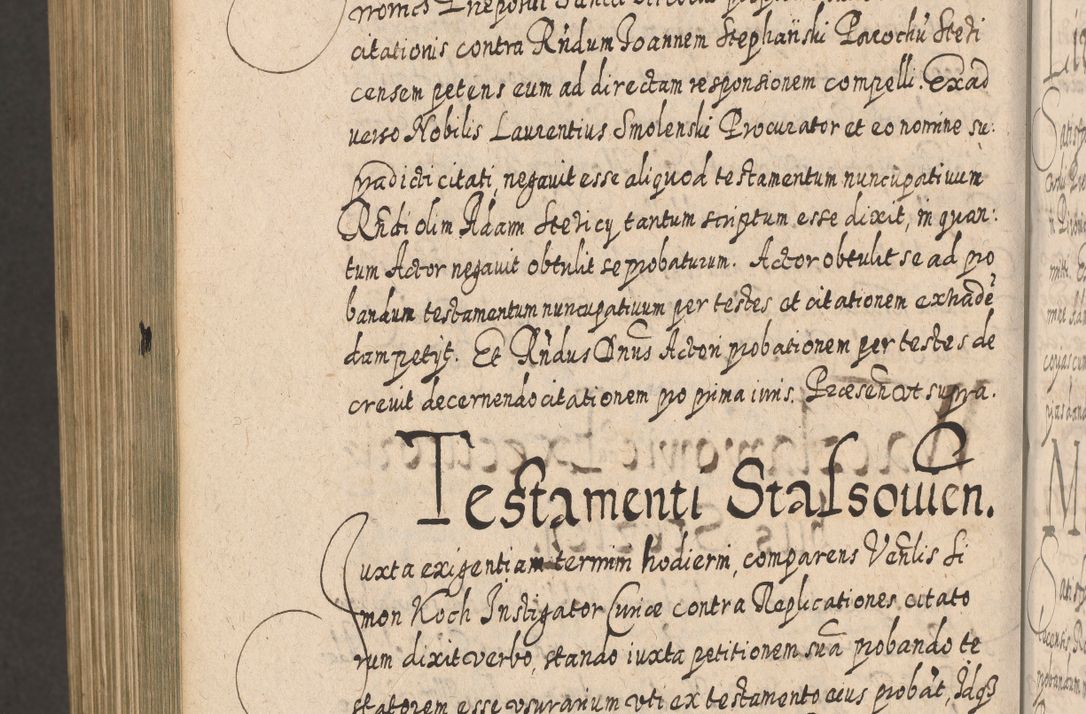 citationis contra Rńdum Joannem Stephański Parochū Steri
censem petens eum ad directam responsionem compelli. Ex ad
verso Nobilis Laurentius Smolenski Procurator et eo nomine su:
pradicti citati, negavit esse aliquod testamentum nuncupativum
Rńdi olim Adam Stericy tantum scriptum esse dixit, in quan:
tum Actor negavit obtulit se probaturum. Actor obtulit se ad pro
bandum testamentum nuncupativum per testes et citationem ex hade
dam petijt. Et Rńdus Dnus Actori probationem per testes de
crevit decernendo citationem pro prima iuris. Præsen͂ ut supra.
Testamenti Stassowien.
Juxta exigentiam termini hodierni, comparens Venlis Si
mon Koch Instigator Curiæ contra Replicationes citato
rum dixit verbo, stando iuxta petitionem suā probando te
statorem esse usurarium uti ex testamento eius probāt, Idqꝫ